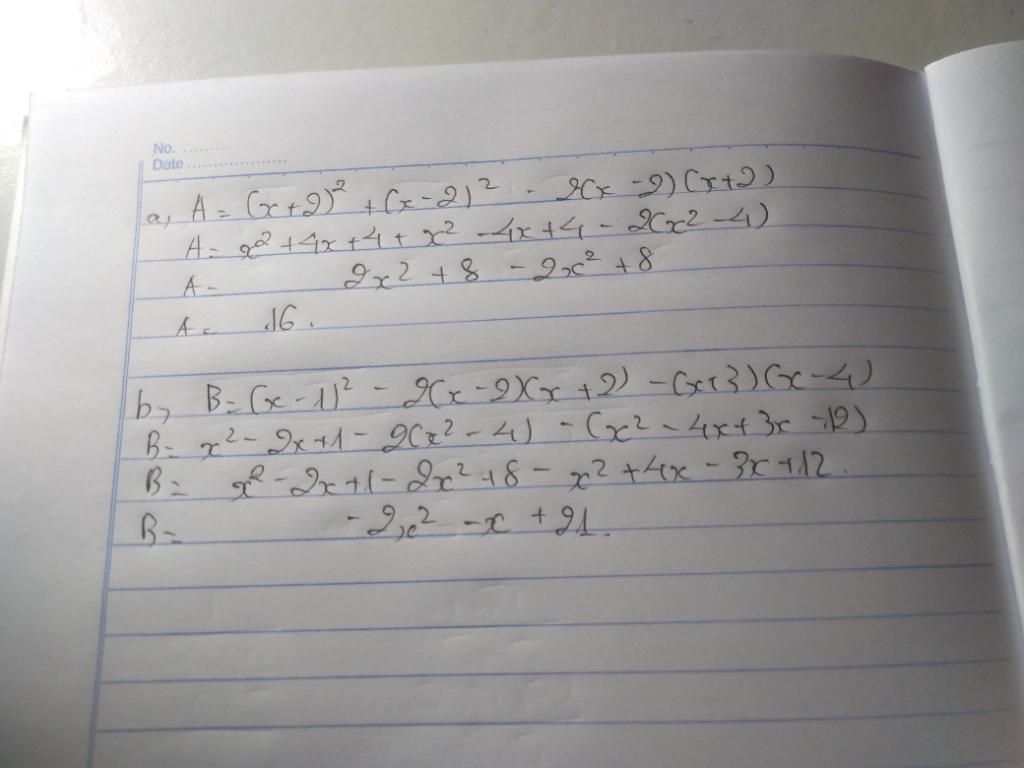 No. ........
Date ...................
a, A = (x+2)² + (x-2)² - 2(x-2)(x+2)
A = x² + 4x + 4 + x² - 4x + 4 - 2(x² - 4)
A = 2x² + 8 - 2x² + 8
A = 16.
b, B = (x-1)² - 2(x-2)(x+2) - (x+3)(x-4)
B = x² - 2x + 1 - 2(x² - 4) - (x² - 4x + 3x - 12)
B = x² - 2x + 1 - 2x² + 8 - x² + 4x - 3x + 12.
B = - 2x² - x + 21.